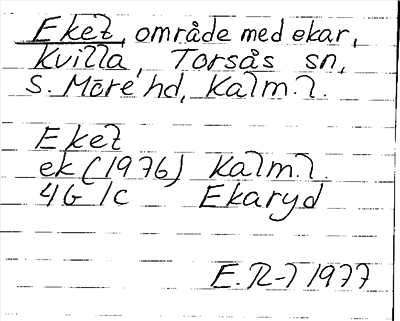 Eket, område med ekar,
Kvilla, Torsås sn,
S. Möre hd, Kalm.l.
Eket
ek (1976) Kalm.l.
4G 1c Ekaryd
E.R-7 1977